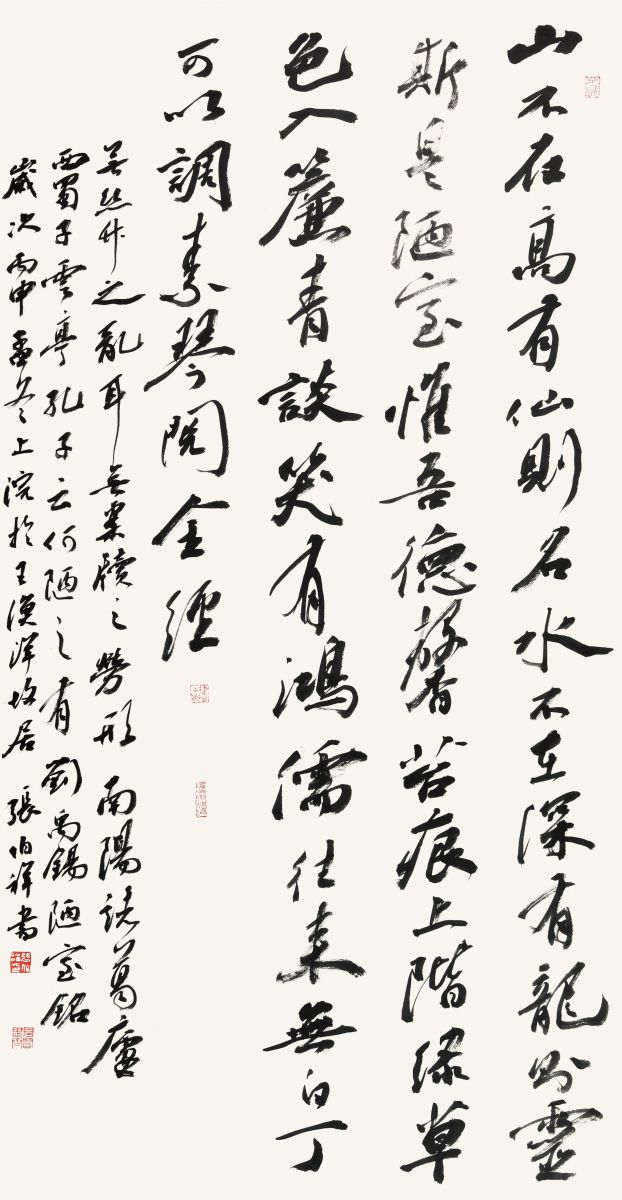 山不在高有仙則名水不在深有龍則靈
斯是陋室惟吾德馨苔痕上階綠草
色入簾青談笑有鴻儒往來無白丁
可以調素琴閱金經
無絲竹之亂耳無案牘之勞形南陽諸葛廬
西蜀子雲亭孔子云何陋之有劉禹錫陋室銘
歲次丙申孟冬上浣於王漁洋故居張伯祥書